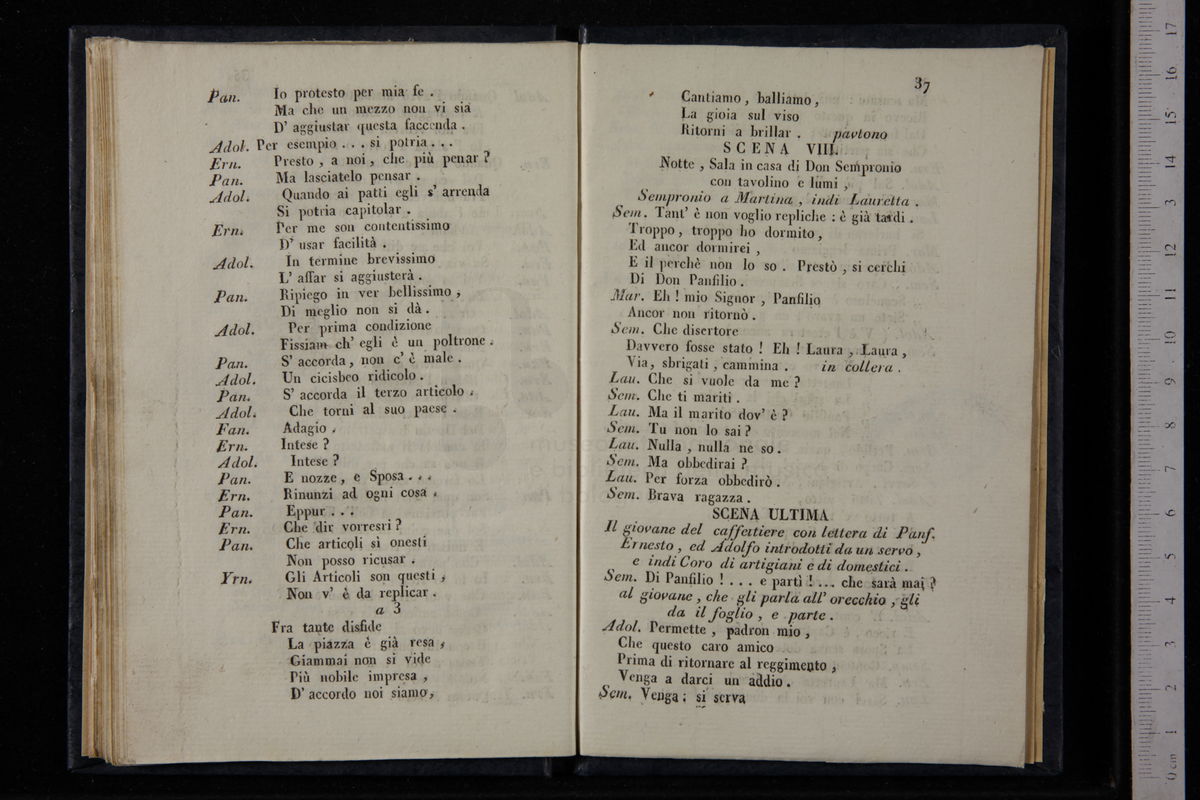 Pan. Io protesto per mia fe .
Ma che un mezzo non vi sia
D' aggiustar questa faccenda .
Adol. Per esempio . . . si potria . . .
Ern. Presto , a noi , che più penar ?
Pan. Ma lasciatelo pensar .
Adol. Quando ai patti egli s' arrenda
Si potria capitolar .
Ern. Per me son contentissimo
D' usar facilità .
Adol. In termine brevissimo
L' affar si aggiusterà .
Pan. Ripiego in ver bellissimo ,
Di meglio non si dà .
Adol. Per prima condizione
Fissiam ch' egli è un poltrone .
Pan. S' accorda , non c' è male .
Adol. Un cicisbeo ridicolo .
Pan. S' accorda il terzo articolo .
Adol. Che torni al suo paese .
Fan. Adagio .
Ern. Intese ?
Adol. Intese ?
Pan. E nozze , e Sposa . . .
Ern. Rinunzi ad ogni cosa .
Pan. Eppur . . .
Ern. Che dir vorresri ?
Pan. Che articoli sì onesti
Non posso ricusar .
Yrn. Gli Articoli son questi ,
Non v' è da replicar .
a 3
Fra tante disfide
La piazza è già resa ,
Giammai non si vide
Più nobile impresa ,
D' accordo noi siamo ,
37
Cantiamo , balliamo ,
La gioia sul viso
Ritorni a brillar . partono
SCENA VIII.
Notte , Sala in casa di Don Sempronio
con tavolino e lumi ,
Sempronio a Martina , indi Lauretta .
Sem. Tant' è non voglio repliche : è già tardi .
Troppo , troppo ho dormito ,
Ed ancor dormirei ,
E il perchè non lo so . Prestò , si cerchi
Di Don Panfilio .
Mar. Eh ! mio Signor , Panfilio
Ancor non ritornò .
Sem. Che disertore
Davvero fosse stato ! Eh ! Laura , Laura ,
Via , sbrigati , cammina . in collera .
Lau. Che si vuole da me ?
Sem. Che ti mariti .
Lau. Ma il marito dov' è ?
Sem. Tu non lo sai ?
Lau. Nulla , nulla ne so .
Sem. Ma obbedirai ?
Lau. Per forza obbedirò .
Sem. Brava ragazza .
SCENA ULTIMA
Il giovane del caffettiere con lettera di Panf.
Ernesto , ed Adolfo introdotti da un servo ,
e indi Coro di artigiani e di domestici .
Sem. Di Panfilio ! . . . e partì ! ... che sarà mai ?
al giovane , che gli parla all' orecchio , gli
da il foglio , e parte .
Adol. Permette , padron mio ,
Che questo caro amico
Prima di ritornare al reggimento ,
Venga a darci un addio .
Sem. Venga : si serva